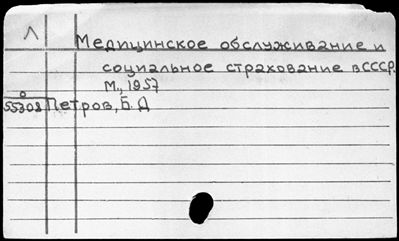 Л
Медицинское обслуживание и
социальное страхование в СССР.
М., 1957
55308 Петров, Б. Д